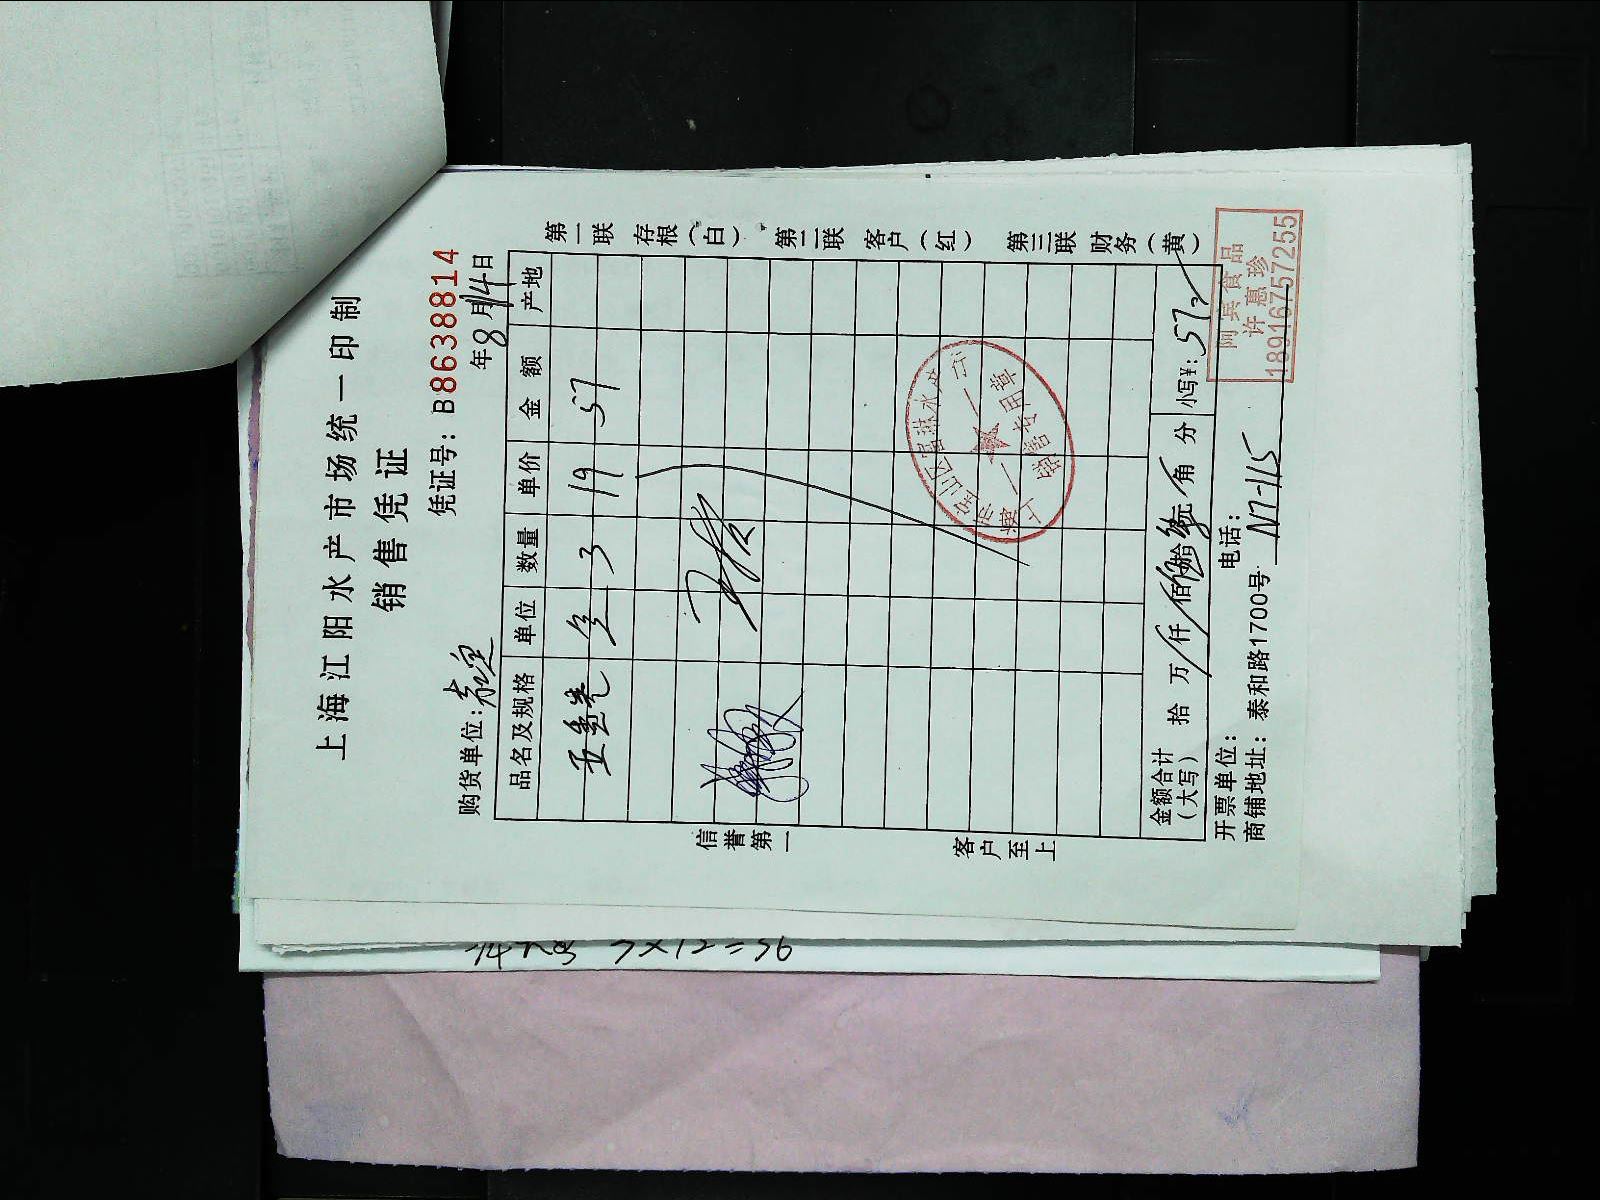 上海江阳水产市场统一印制
销售凭证
凭证号：B8638814
购货单位： 年8月14日
品名及规格 单位 数量 单价 金额 产地
3 19 57
第一联 存根（白） 第二联 客户（红） 第三联 财务（黄）
信誉第一
客户至上
金额合计（大写） 拾 万 仟 佰 拾 元 角 分 小写¥：57
开票单位： 电话：
商铺地址：泰和路1700号 N7-115
阿宾食品
许惠珍
18916757255
销售专用章
3×12=36